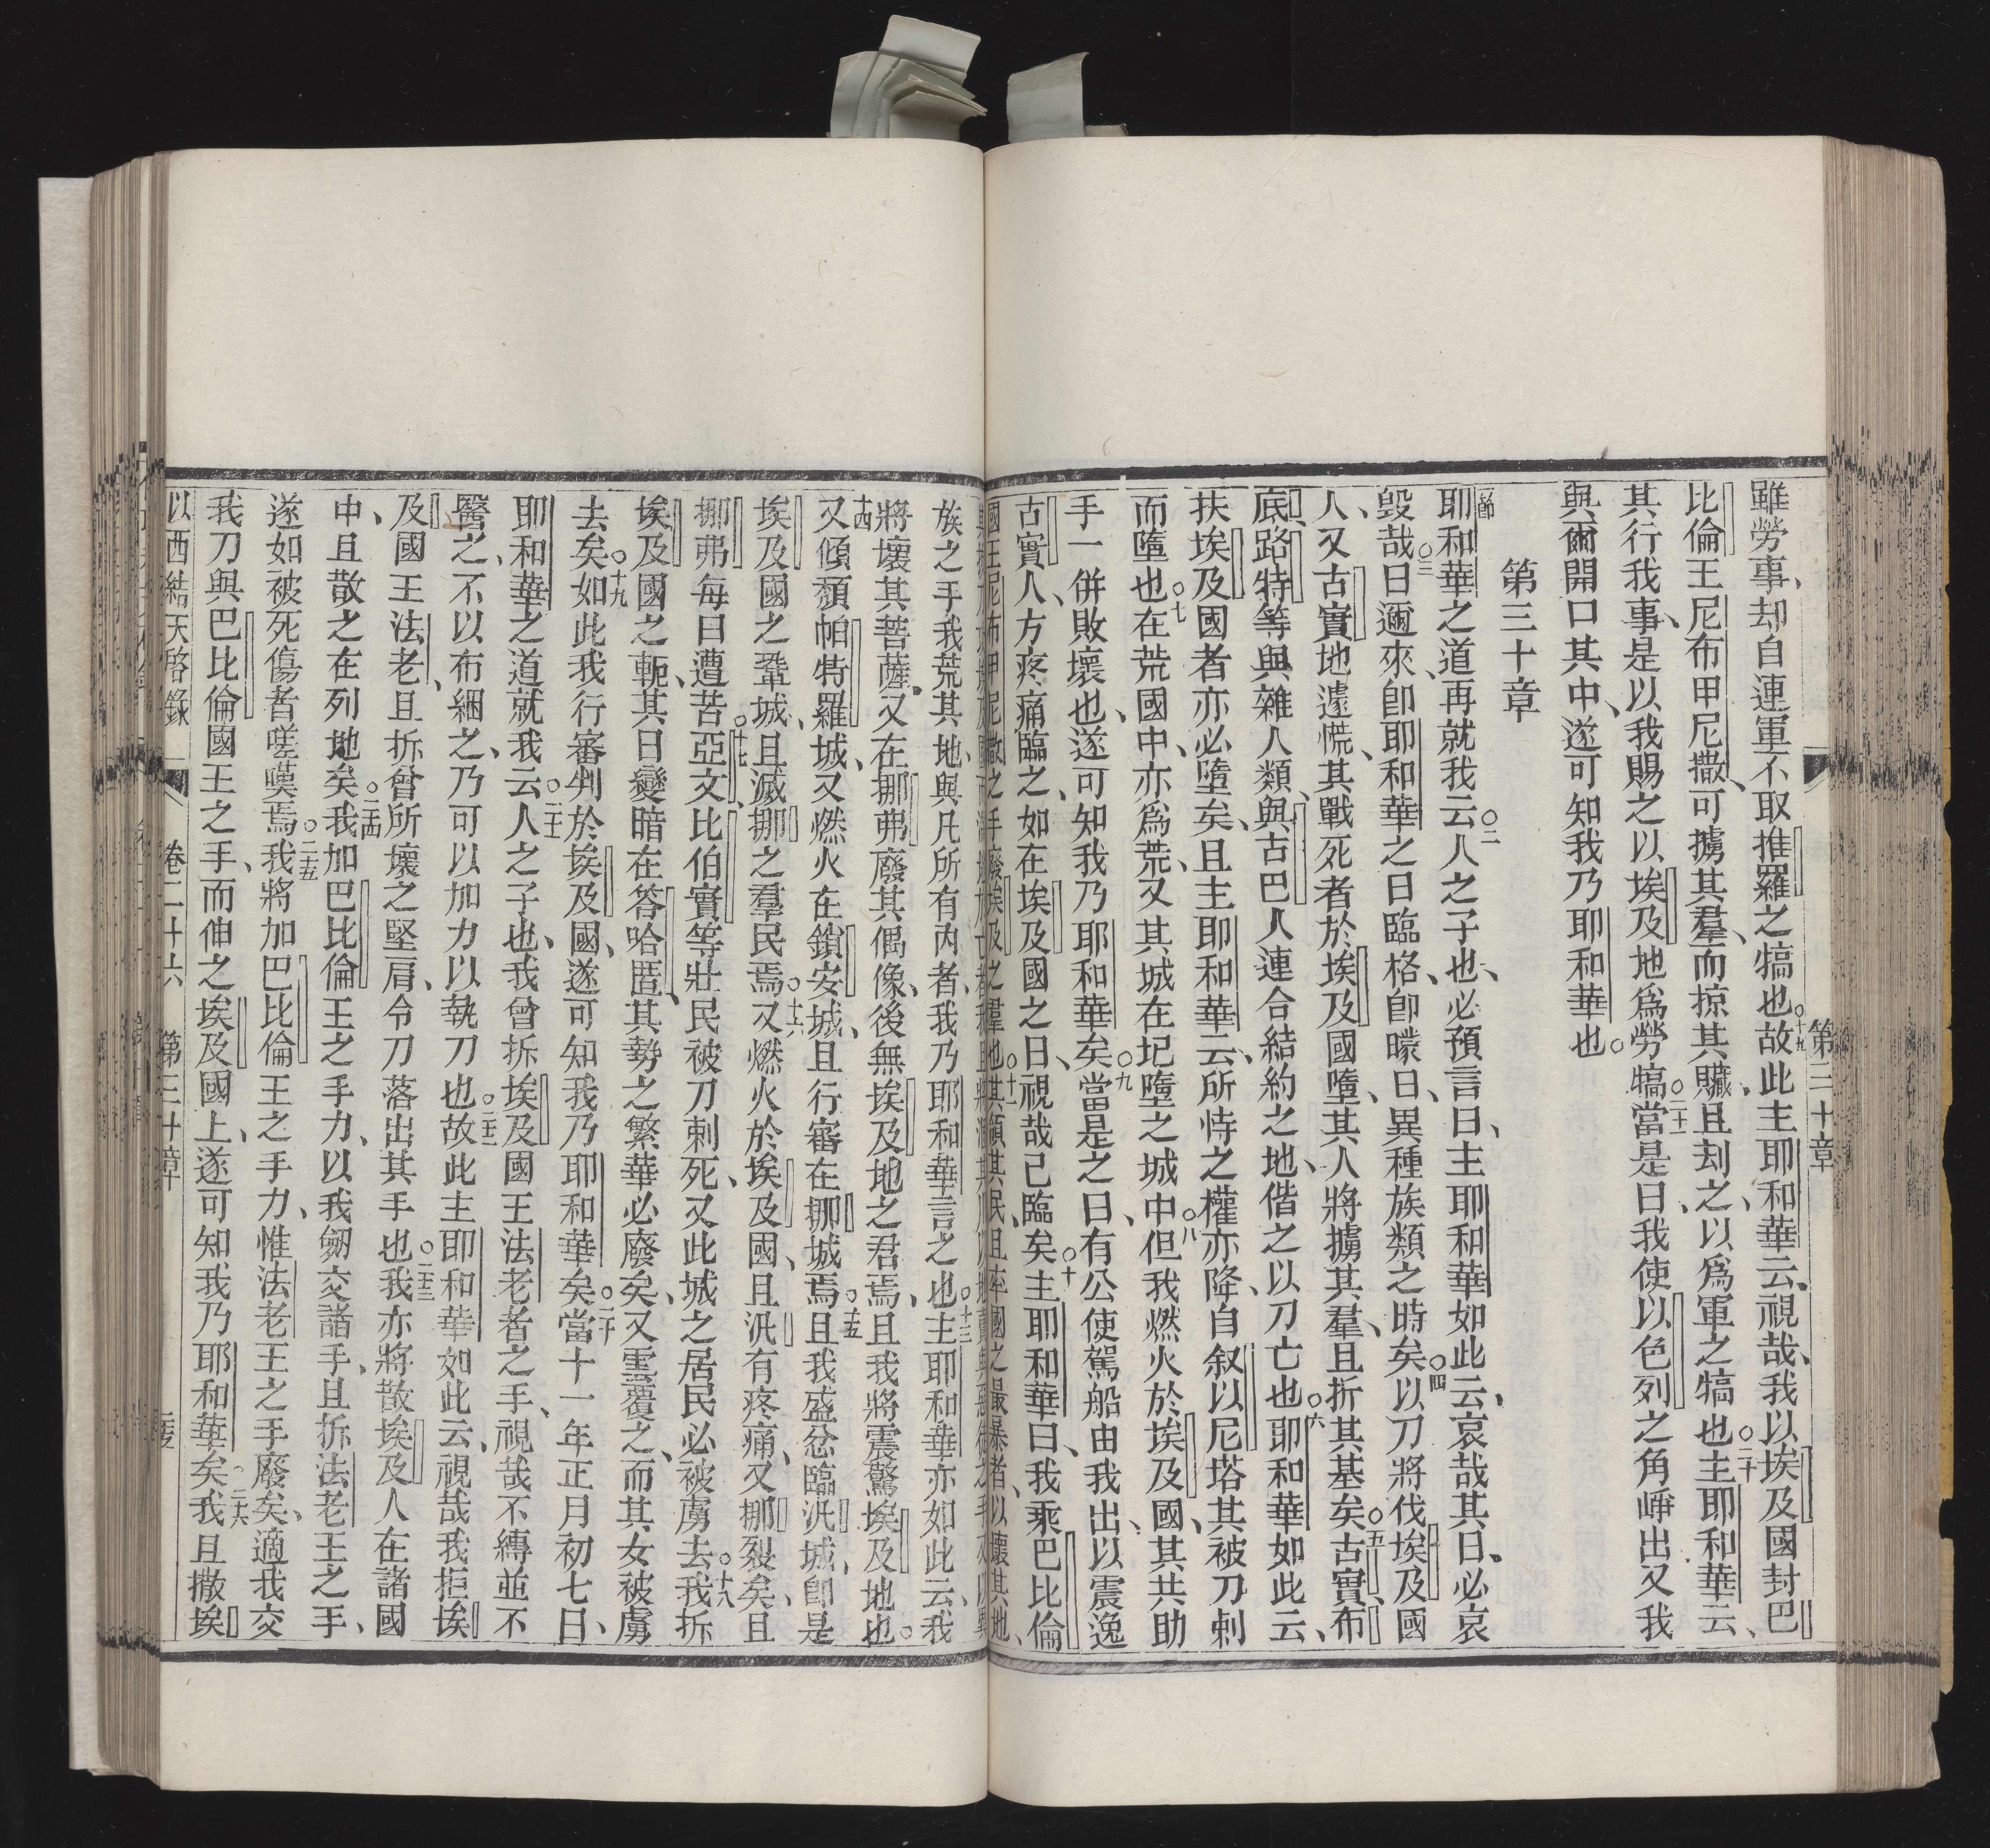 第三十章
雖勞事、却自連軍不取推羅之犒也。十九故此主耶和華云、視哉、我以埃及國封巴
比倫王尼布甲尼撒、可擄其羣、而掠其贜、且刦之、以爲軍之犒也。二十主耶和華云、
其行我事、是以我賜之以埃及地爲勞犒。二十一當是日、我使以色列之角崢出、又我
與爾開口其中、遂可知我乃耶和華也。
第三十章
一節耶和華之道再就我云、○二人之子也、必預言曰、主耶和華如此云、哀哉其日、必哀
毀哉。○三日邇來、卽耶和華之日臨格、卽曚日、異種族類之時矣。○四以刀將伐埃及國
人、又古實地遽慌、其戰死者於埃及國墮、其人將擄其羣、且折其基矣。○五古實、布
底、路特等與雜人類、與古巴人連合結約之地、偕之以刀亡也。○六耶和華如此云、
扶埃及國者亦必墮矣、且主耶和華云、所恃之權亦降、自叙以尼塔其被刀刺
而墮也。○七在荒國中、亦爲荒、又其城在圮墮之城中。○八但我燃火於埃及國、其共助
手一併敗壞也、遂可知我乃耶和華矣。○九當是之日、有公使駕船由我出、以震逸
古實人、方疼痛臨之、如在埃及國之日、視哉已臨矣。○十主耶和華曰、我乘巴比倫
國王尼布甲尼撒之手廢埃及之羣也。○十一其領其民、且率國之最暴者、以壞其地、
族之手我荒其地、與凡所有內者、我乃耶和華言之也。○十三主耶和華亦如此云、我
將壞其菩薩、又在挪弗廢其偶像、後無埃及地之君焉、且我將震驚埃及地也。
十四又傾頽帕特羅城、又燃火在鎖安城、且行審在挪城焉。○十五且我盛忿臨汎城、卽是
埃及國之鞏城、且滅挪之羣民焉。○十六又燃火於埃及國、且汎有疼痛、又挪裂矣、且
挪弗每日遭苦。○十七亞文、比伯實等壯民被刀刺死、又此城之居民必被虜去。○十八我拆
埃及國之軛、其日變暗在答哈匿、其勢之繁華必廢矣、又雲覆之、而其女被虜
去矣。○十九如此我行審判於埃及國、遂可知我乃耶和華矣。○二十當十一年正月初七日、
耶和華之道就我云、○二十一人之子也、我曾拆埃及國王法老者之手、視哉不縛並不
醫之、不以布綑之、乃可以加力以執刀也。○二十二故此主耶和華如此云、視哉我拒埃
及國王法老、且拆曾所壞之堅肩、令刀落出其手也。○二十三我亦將散埃及人在諸國
中、且散之在列地矣。○二十四我加巴比倫王之手力、以我劒交諸手、且拆法老王之手、
遂如被死傷者嗟嘆焉。○二十五我將加巴比倫王之手力、惟法老王之手廢矣、適我交
我刀與巴比倫國王之手、而伸之埃及國上、遂可知我乃耶和華矣。○二十六我且撒埃
以西結天啓錄 卷二十六 第三十章